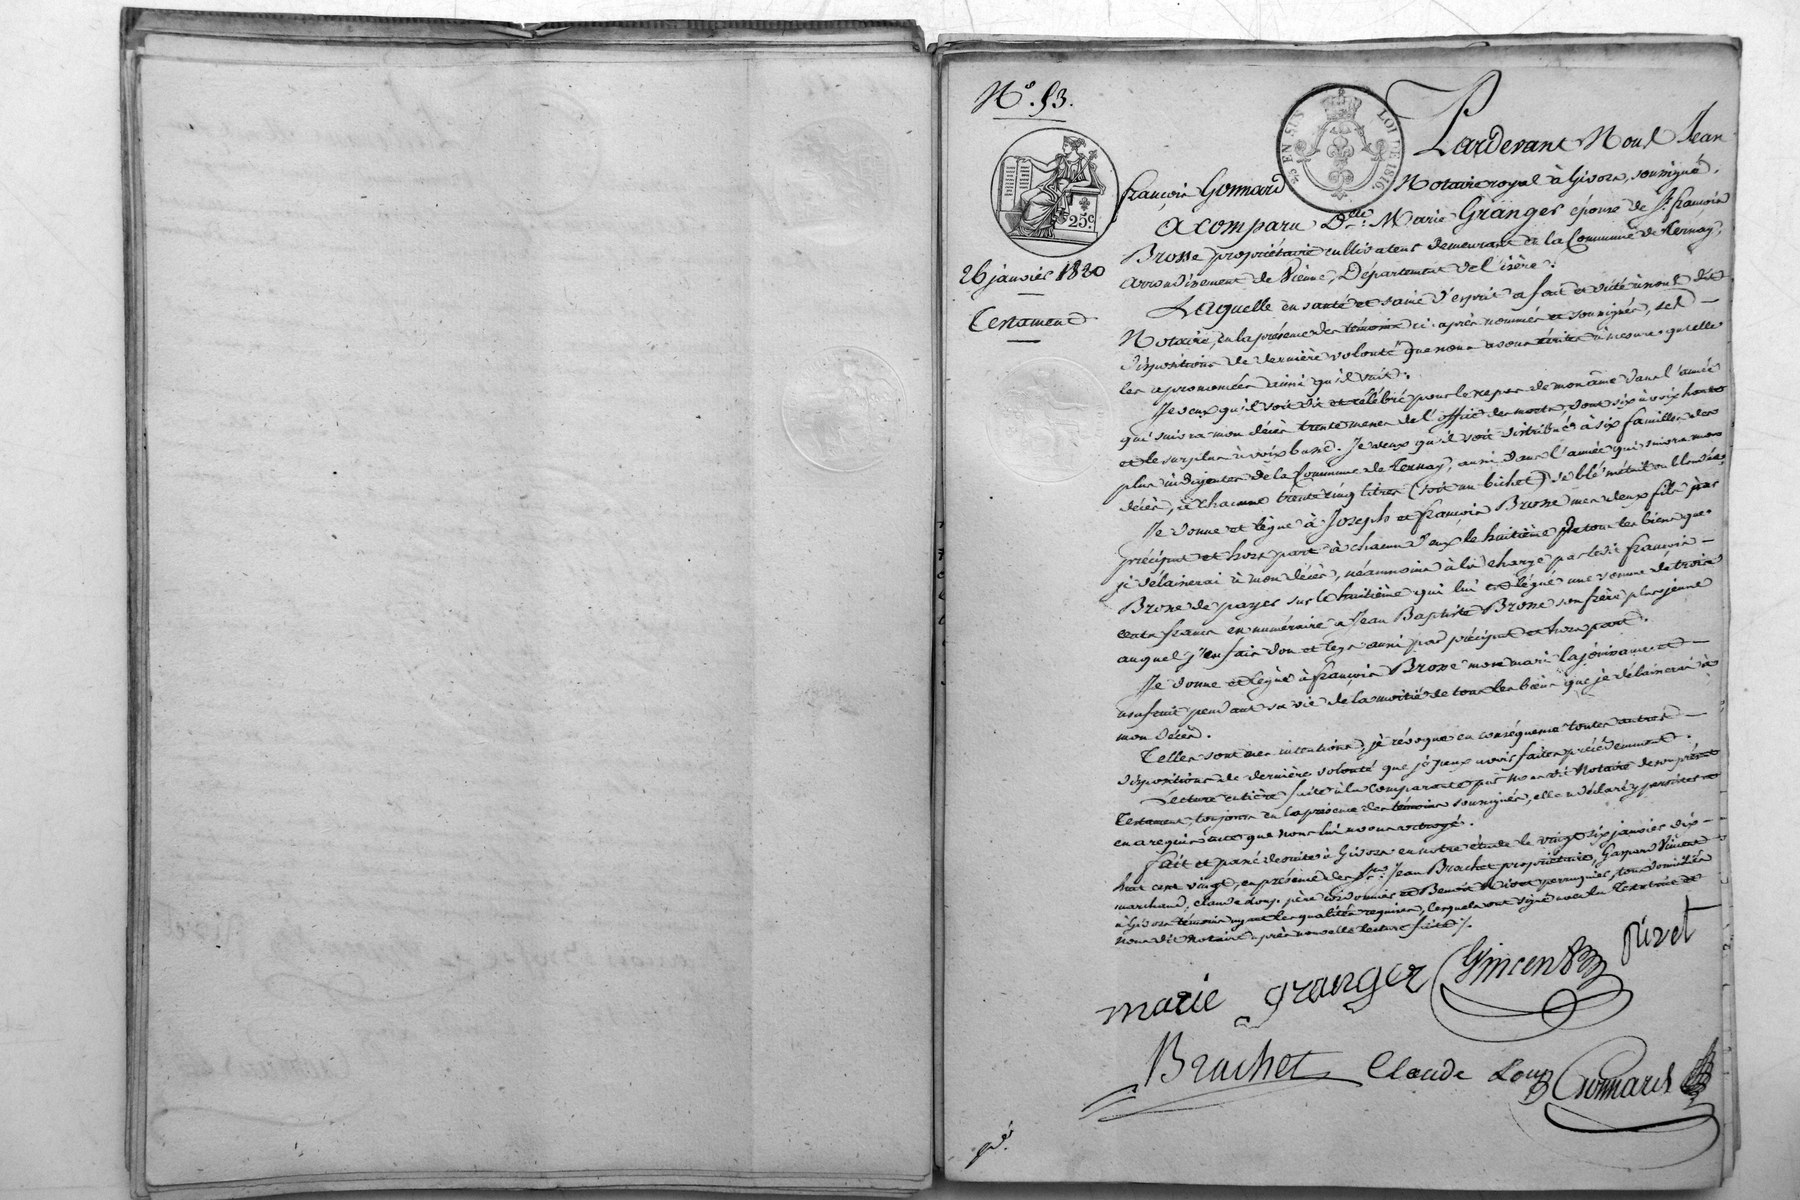 N.° 53.
25 EN SUS LOI DE 1816
25c.
26 janvier 1820
Testament
Pardevant Nous Jean
françois Gonnard Notaire royal à Givors, soussigné,
A comparu D.elle Marie Granger épouse de S.r françois
Brosse propriétaire cultivateur demeurant de la Commune de Ternay,
arrondissement de Vienne, Département de l'isère.
Laquelle en santé et saine d'esprit a fait et dicté à nous dit
Notaire, en la présence des témoins ci-après nommés et soussignés, ses
dispositions de dernière volonté que nous avons écrites à mesure qu'elle
les a prononcées ainsi qu'il suit.
Je veux qu'il soit dit et célébré pour le repos de mon âme dans l'année
qui suivra mon décès trente messes de l'office des morts, dont six à voix haute
et le surplus à voix basse. Je veux qu'il soit distribué à six familles des
plus indigentes de la Commune de Ternay, aussi dans l'année qui suivra mon
décès, à chacune trente cinq litres (soit un bichet) de blé méteil ou
Je donne et lègue à Joseph et françois Brosse mes deux fils par
préciput et hors part à chacun d'eux le huitième de tous les biens que
je délaisserai à mon décès, néanmoins à la charge par ledit françois
Brosse de payer sur le huitième qui lui est légué une somme de trois
cents francs en numéraire à Jean Baptiste Brosse son frère plus jeune
auquel j'en fais don et legs aussi par préciput et hors part.
Je donne et lègue à françois Brosse mon mari la jouissance et
usufruit pendant sa vie de la moitié de tous les biens que je délaisserai à
mon décès.
Telles sont mes intentions, je révoque en conséquence toutes autres
dispositions de dernière volonté que je peux avoir faites précédemment.
Lecture entière faite à la comparante par nous dit Notaire de son présent
Testament, toujours en la présence des témoins soussignés, elle a déclaré y persister et
en a requis acte que nous lui avons octroyé.
fait et passé de suite à Givors en notre étude le vingt six janvier dix-
huit cent vingt, en présence des S.rs Jean Brachet propriétaire, Gaspard Vincent
marchand, Claude Loup père cordonnier et Benoit Pivet perruquier, tous domiciliés
à Givors témoins ayant les qualités requises, lesquels ont signé avec la Testatrice et
nous dit notaire après nouvelle lecture faite ./.
marie granger GVincent pivet
Brachet Claude Loup Gonnard